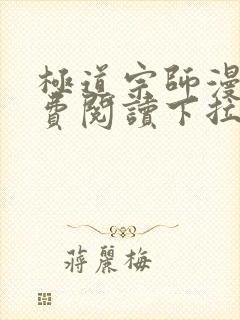 極道宗師漫
費閱讀下拉
蔣麗梅